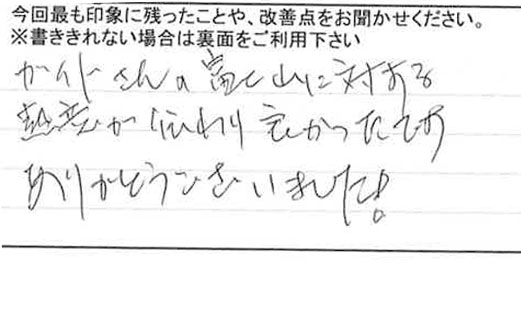 今回最も印象に残ったことや、改善点をお聞かせください。
※書ききれない場合は裏面をご利用下さい
ガイドさんの富士山に対する
熱意が伝わり良かったです
ありがとうございました!